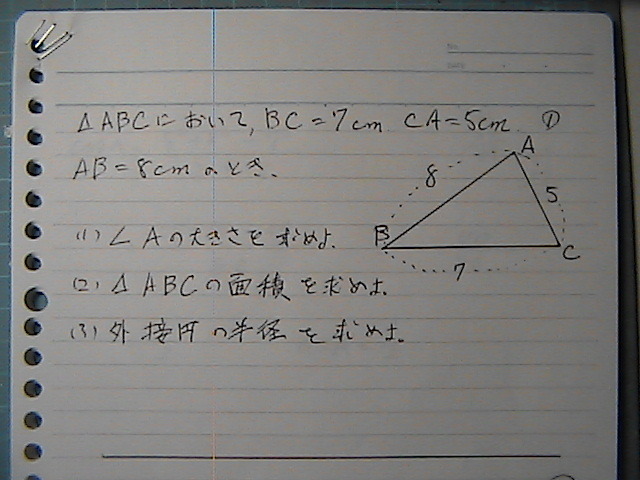 △ABCにおいて, BC=7cm CA=5cm ①
AB=8cmのとき.
(1) ∠Aの大きさを求めよ.
(2) △ABCの面積を求めよ.
(3) 外接円の半径を求めよ.
A
8
5
B
C
7
No.
Date